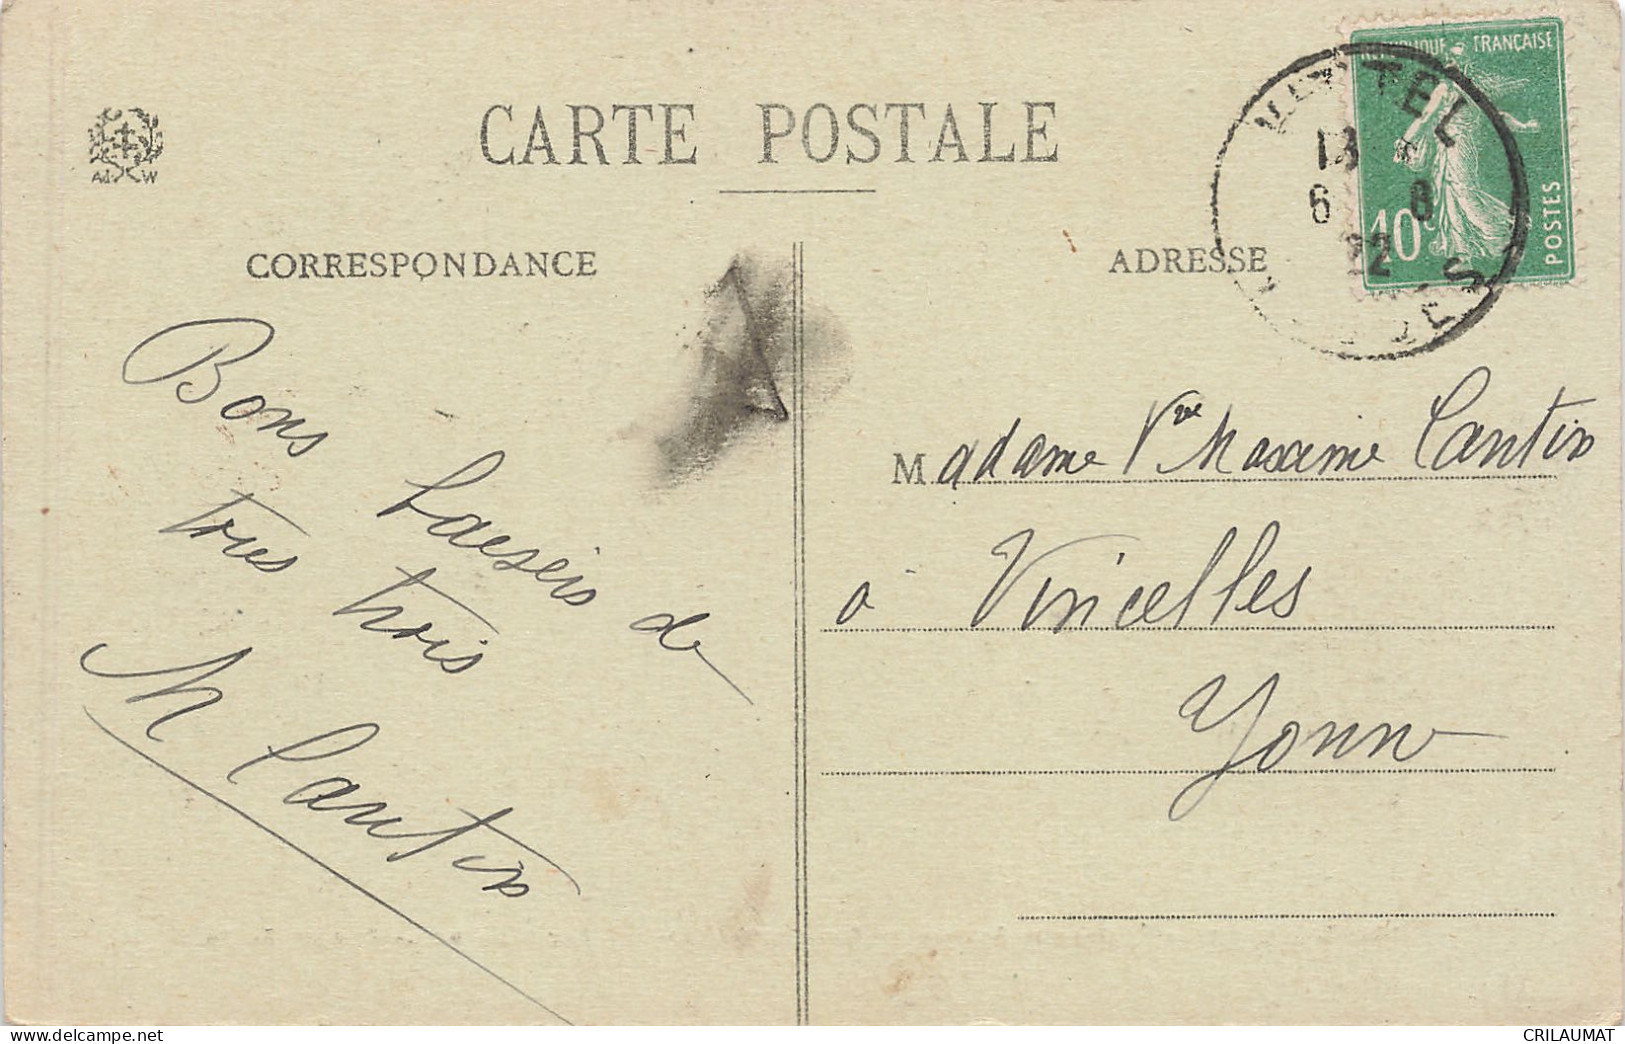 CARTE POSTALE
Ad W
CORRESPONDANCE
ADRESSE
RÉPUBLIQUE FRANÇAISE
10c
POSTES
VITTEL
13 *
6 8
22
Bons baisers de
tous trois
M Cantin
Madame Vve Maxime Cantin
à Vincelles
Yonne
delcampe.net
CRILAUMAT